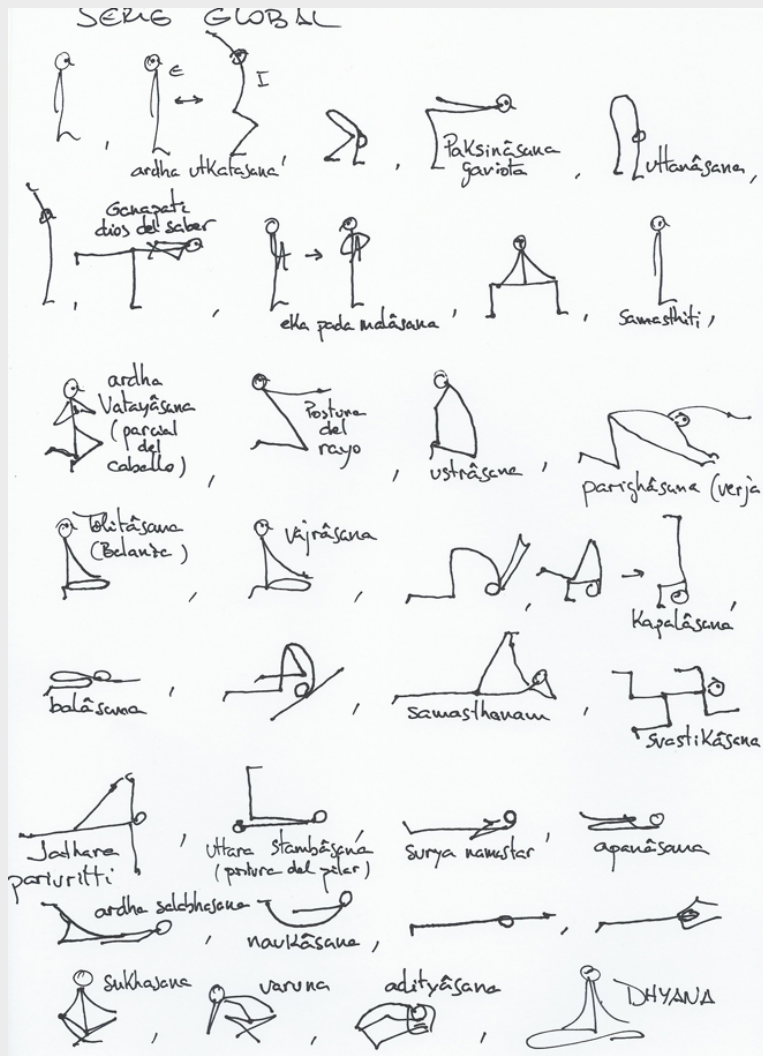 SERIE GLOBAL
E
I
ardha utkatasana,
Paksinâsana
gaviota
uttanâsana,
Ganapati
dios del saber
eka pada malâsana
samasthiti,
ardha
Vatayâsana
(parcial
del
caballo)
Postura
del
rayo
ustrâsana
parighâsana (verja
Tolitâsana
(Balanza)
vajrâsana
Kapalâsana
balâsana
samasthanam
svastikâsana
Jathara
parivritti
uttara stambâsana
(postura del pilar)
surya namaskar
apanâsana
ardha salabhasana
navkâsana,
sukhasana
varuna
adityâsana
DHYANA